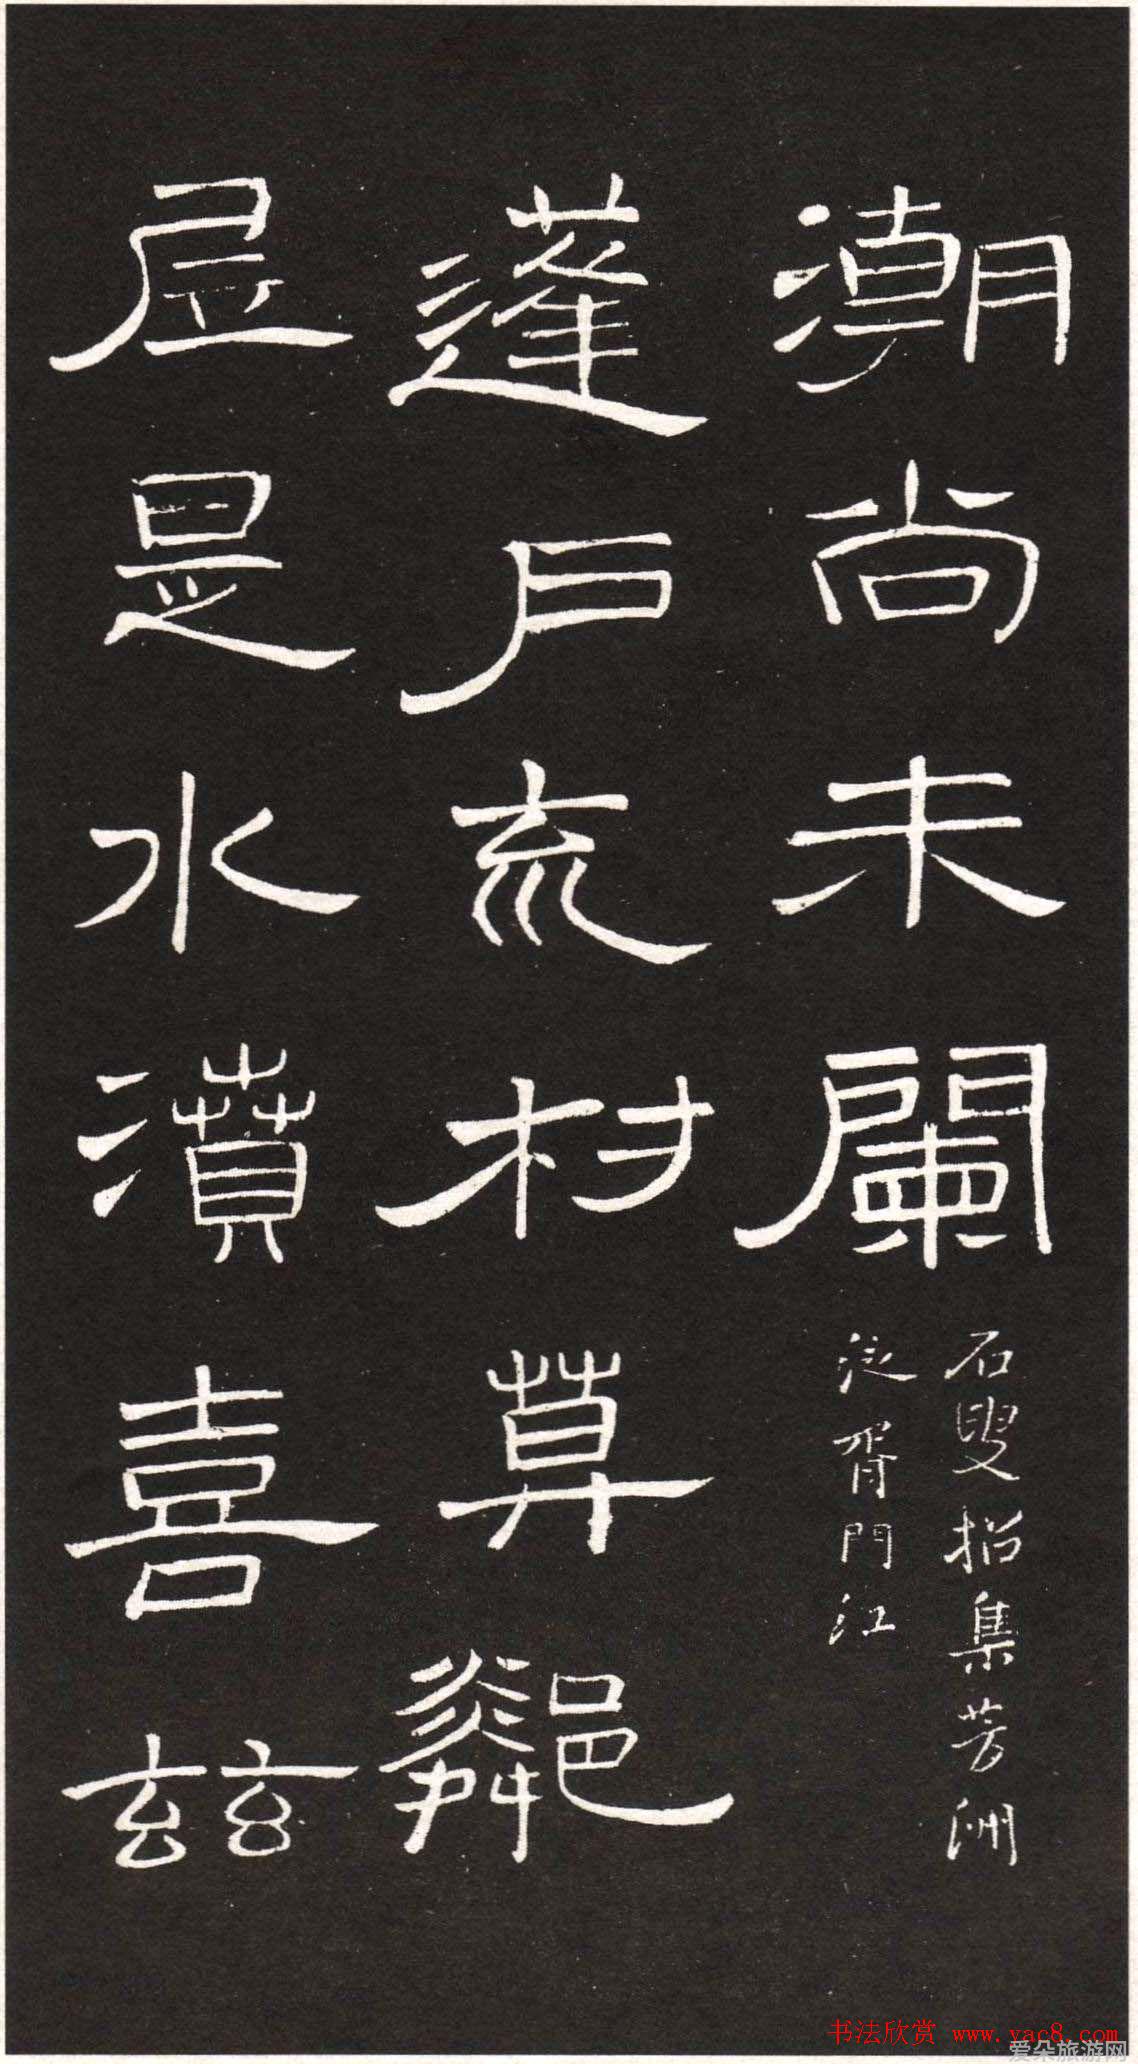 潮尚未闌
石叟招集芳洲
泛胥門江
蓬戶流村草鄰
居是水濆喜茲
书法欣赏 www.yac8.com
爱朵旅游网